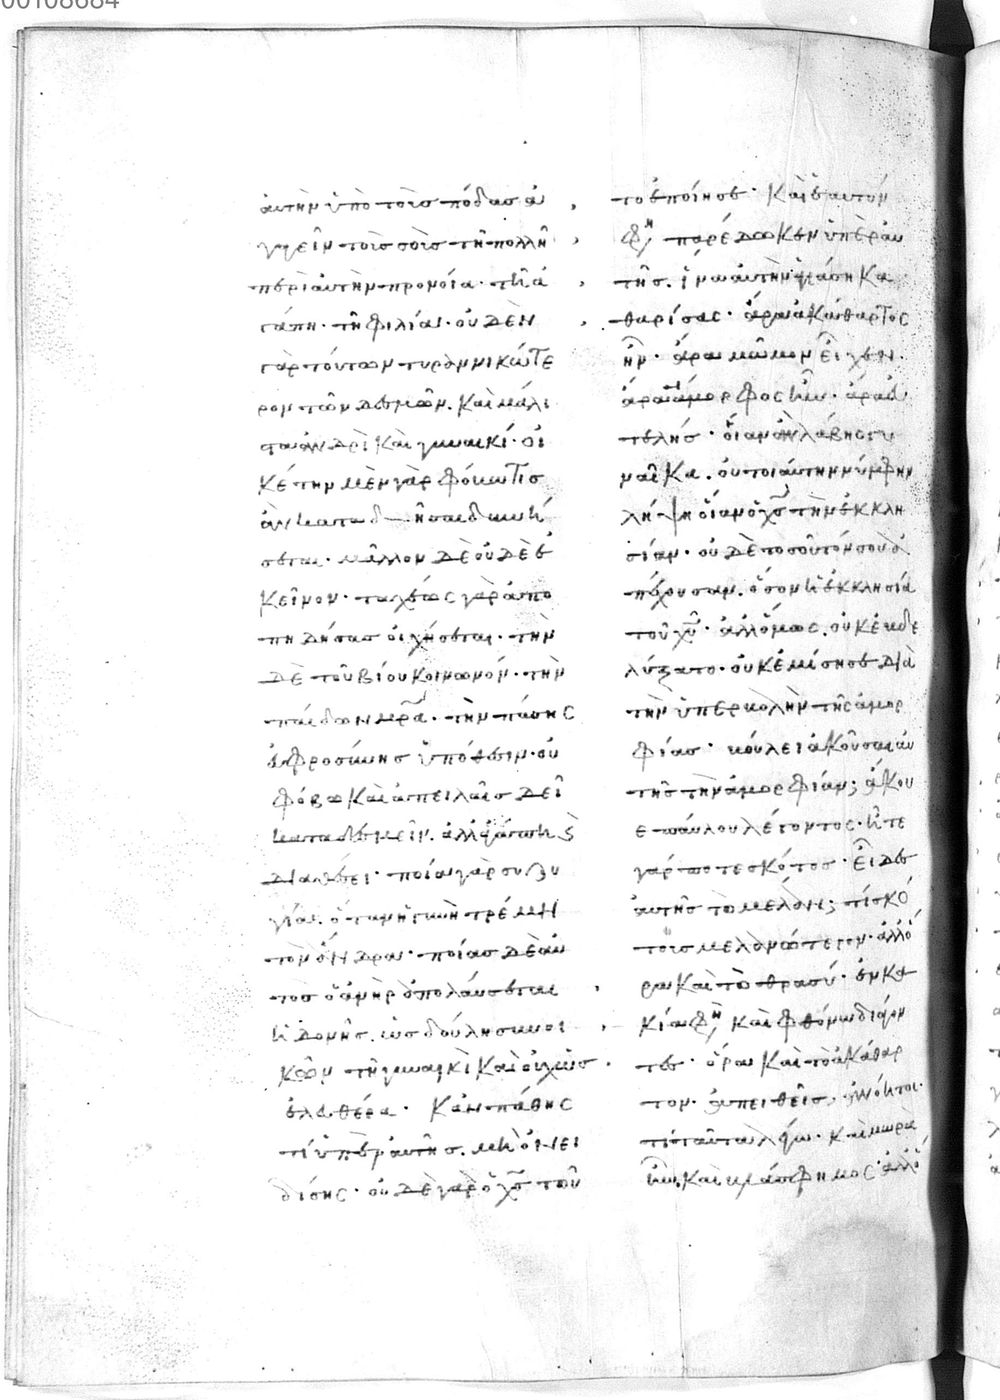 00108684
αὐτὴν ὑπὸ τοὺς πόδας ἀ
γαγεῖν τοῖς σοῖς τῇ πολλῇ
περὶ αὐτὴν προνοίᾳ· τῇ ἀ
γάπῃ· τῇ φιλίᾳ· οὐδὲν
γὰρ τούτων τυραννικώτε
ρον τῶν δεσμῶν. καὶ μάλι
στα ἀνδρὶ καὶ γυναικί· οἰ
κέτην μὲν γὰρ φόβω τις
ἂν καταδῆσαι δυνή
σεται· μᾶλλον δὲ οὐδὲ ἐ
κεῖνον· ταχέως γὰρ ἀπο
πηδήσας οἰχήσεται· τὴν
δὲ τοῦ βίου κοινωνόν· τὴν
παίδων μρα· τὴν πάσης
εὐφροσύνης ὑπόθεσιν· οὐ
φόβω καὶ ἀπειλαῖς δεῖ
καταδεσμεῖν. ἀλλ' ἀγάπη κ
διαθέσει· ποία γὰρ συζυ
γία· ὅταν ἡ γυνὴ τρέμη
τὸν ἄνδρα· ποίας δὲ αὐ
τὸς ὁ ἀνὴρ ἀπολαύσεται
ἡδονῆς. ὡς δούλη συνοι
κῶν τῇ γυναικὶ καὶ οὐχ ὡς
ἐλευθέρα· κἂν πάθης
τί ὑπὲρ αὐτῆς. μὴ ὀνει
δίσης· οὐδὲ γὰρ ὁ χς τοῦ
το ἐποίησε· καὶ ἑαυτὸν
φη παρέδωκεν ὑπὲρ αὐ
τῆς. ἵνα αὐτὴν ἁγιάση κα
θαρίσας· ἄρα ἀκάθαρτος
ἦν· ἄρα μῶμον εἶχεν.
ἄρα ἄμορφος ἦν· ἄρα εὐ
τελής· οἵαν ἂν λάβης γυ
ναῖκα. οὐ τοιαύτην νύμφην
λήψη οἵαν ὁ χς τὴν ἐκκλη
σίαν· οὐδὲ τοσοῦτόν σου ἀ
πέχουσαν. ὅσον ἡ ἐκκλησία
τοῦ χυ· ἀλλ' ὅμως. οὐκ ἐβδε
λύξατο· οὐκ ἐμίσησε διὰ
τὴν ὑπερβολὴν τῆς ἀμορ
φίας· βούλει ἀκοῦσαι αὐ
τῆς τὴν ἀμορφίαν; ἄκου
ε παύλου λέγοντος· ἦτε
γάρ ποτε σκότος· εἶδες
αὐτῆς τὸ μέλαν; τί σκό
τους μελανώτερον· ἀλλ' ὅ
ρα καὶ τὸ θρασύ· ἐν κα
κία φη καὶ φθόνω διάγον
τες· ὅρα καὶ τὸ ἀκάθαρ
τον· ἀπειθεῖς. ἀνόητοι·
τί ταῦτα λέγω· καὶ μωρὰ
ἦν. καὶ βλάσφημος· ἀλλ' ὅ